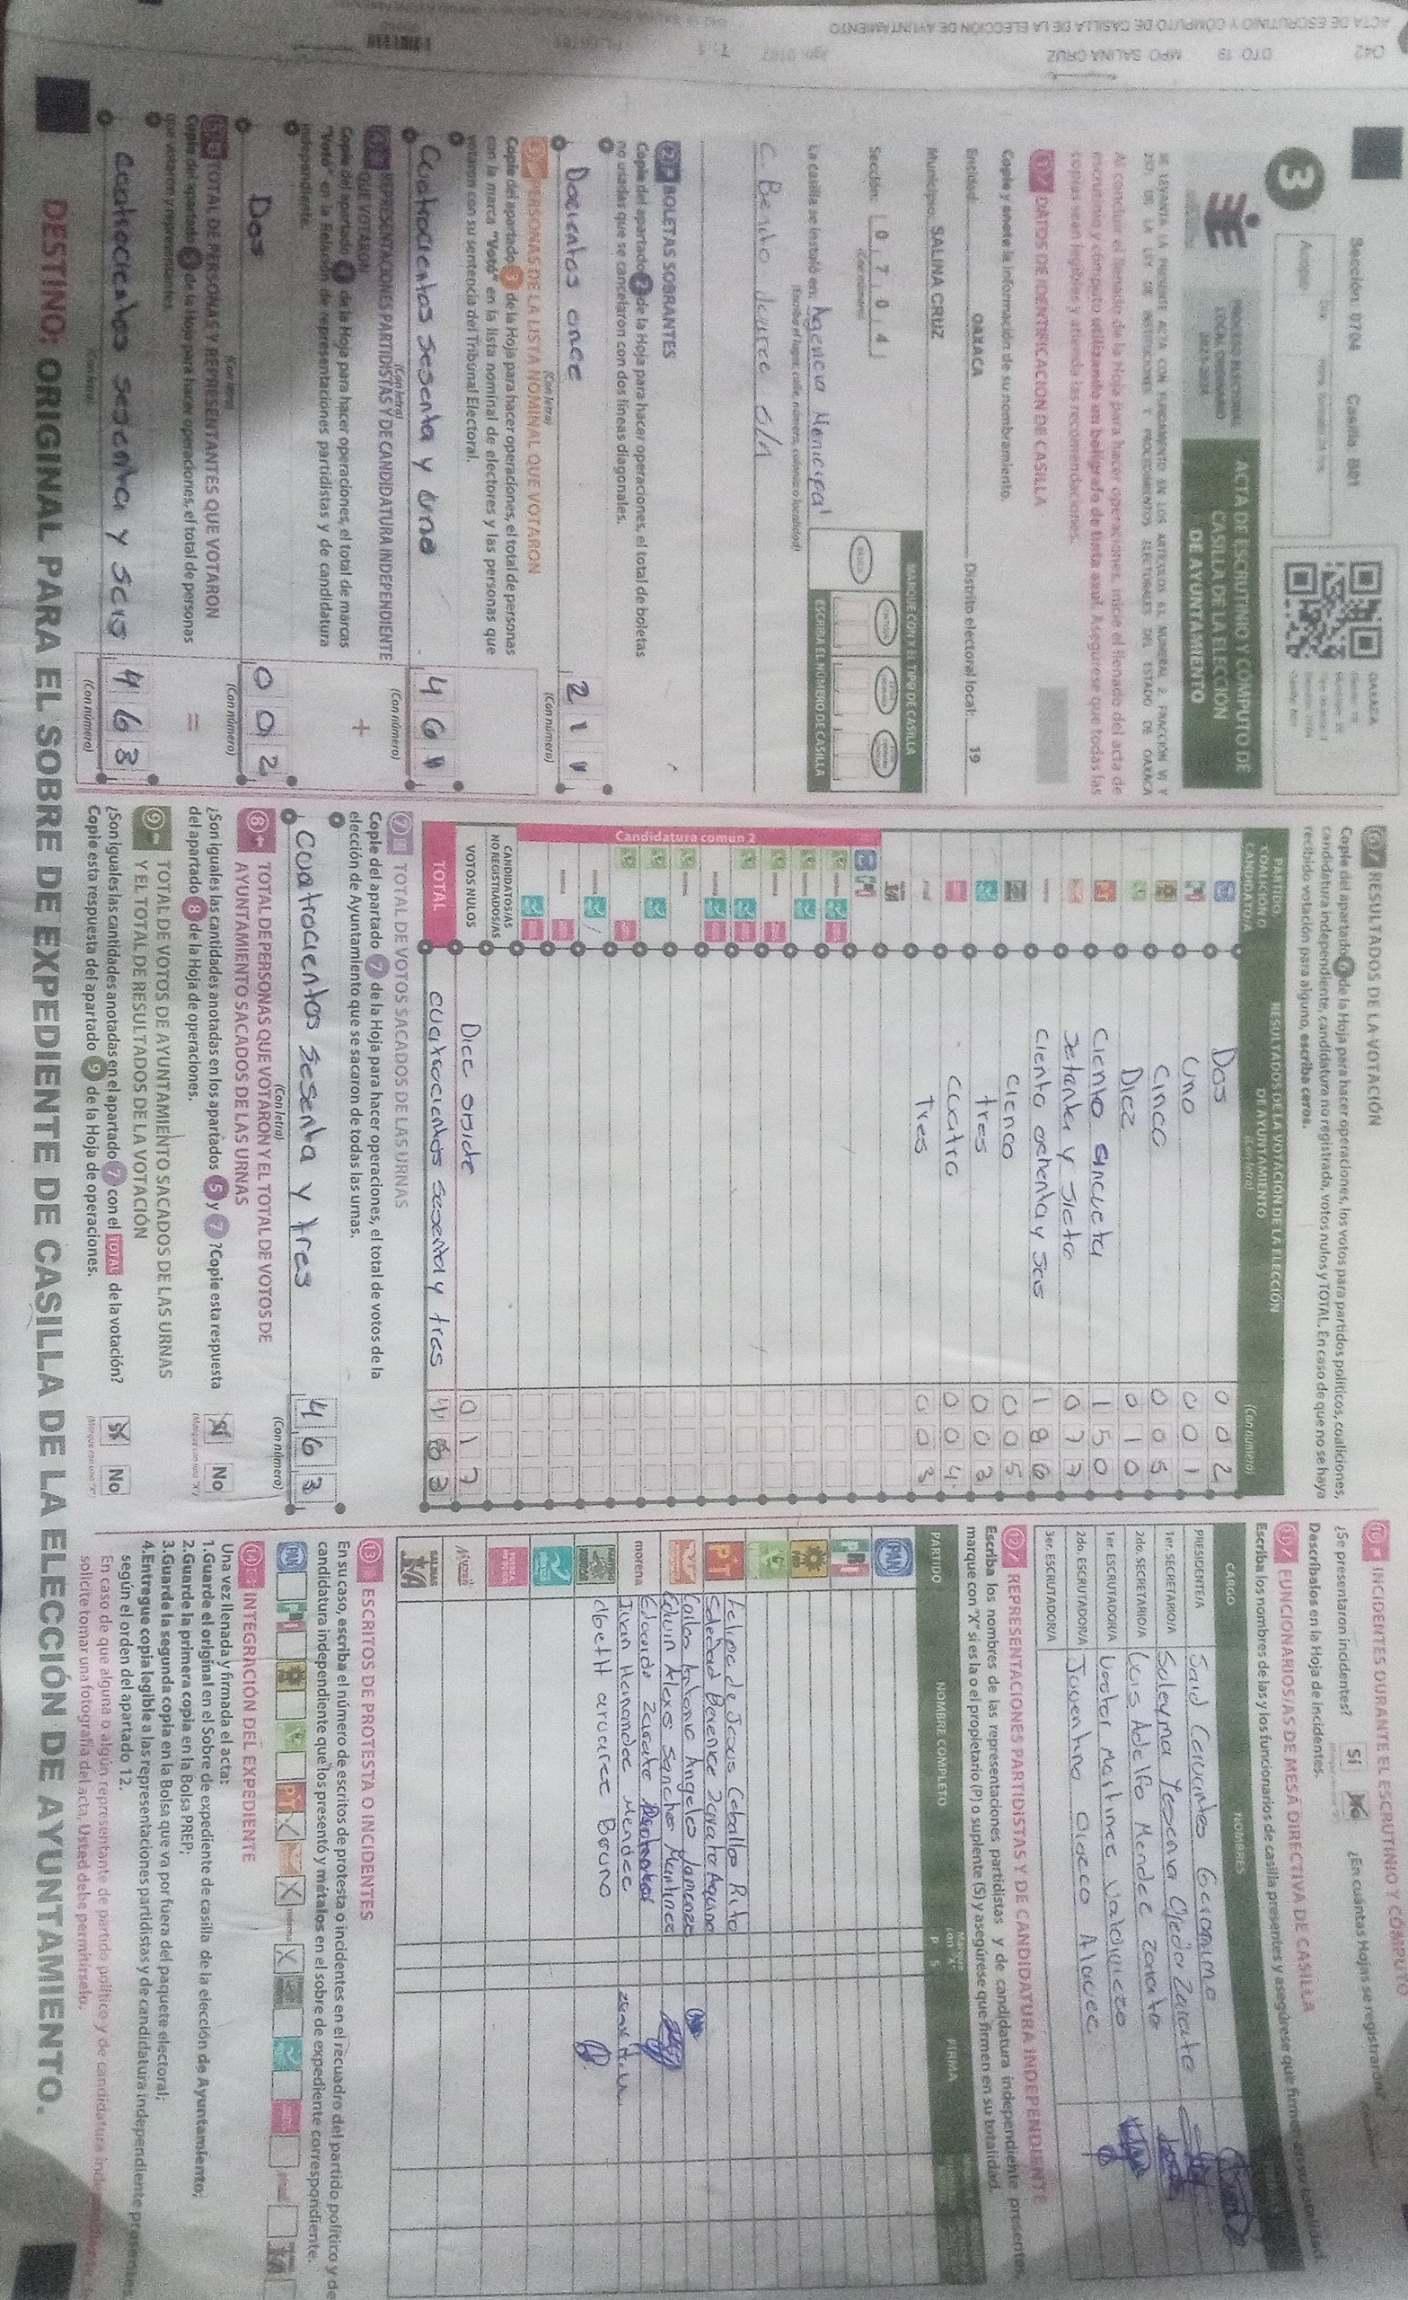 Sección: 0704 Casilla: B01
OAXACA
3
PROCESO ELECTORAL
LOCAL ORDINARIO
2023-2024
ACTA DE ESCRUTINIO Y CÓMPUTO DE
CASILLA DE LA ELECCIÓN
DE AYUNTAMIENTO
Al concluir el llenado de la Hoja para hacer operaciones, inicie el llenado del acta de
escrutinio y cómputo utilizando un bolígrafo de tinta azul. Asegúrese que todas las
copias sean legibles y atienda las recomendaciones.
1 DATOS DE IDENTIFICACIÓN DE CASILLA
Copie y anote la información de su nombramiento.
Entidad: OAXACA Distrito electoral local: 19
Municipio: SALINA CRUZ
Sección: 0 7 0 4
(Con número)
MARQUE CON "X" EL TIPO DE CASILLA
ESCRIBA EL NÚMERO DE CASILLA
La casilla se instaló en: Agencia Municipal
(Escriba el lugar, calle, número, colonia o localidad)
C. Benito Juarez S/N
2 BOLETAS SOBRANTES
Copie del apartado 2 de la Hoja para hacer operaciones, el total de boletas
no usadas que se cancelaron con dos líneas diagonales.
Docientos once 2 1 1
(Con letra) (Con número)
3 PERSONAS DE LA LISTA NOMINAL QUE VOTARON
Copie del apartado 3 de la Hoja para hacer operaciones, el total de personas
con la marca "Votó" en la lista nominal de electores y las personas que
votaron con su sentencia del Tribunal Electoral.
Cuatrocientos sesenta y uno 4 6 1
(Con letra) (Con número)
4 REPRESENTACIONES PARTIDISTAS Y DE CANDIDATURA INDEPENDIENTE
QUE VOTARON
Copie del apartado 4 de la Hoja para hacer operaciones, el total de marcas
"Votó" en la Relación de representaciones partidistas y de candidatura
independiente.
Dos 0 0 2
(Con letra) (Con número)
5 TOTAL DE PERSONAS Y REPRESENTANTES QUE VOTARON
Copie del apartado 5 de la Hoja para hacer operaciones, el total de personas
que votaron y representantes.
4 6 3
(Con letra) (Con número)
6 RESULTADOS DE LA VOTACIÓN
Copie del apartado 6 de la Hoja para hacer operaciones, los votos para partidos políticos, coaliciones,
candidatura independiente, candidatura no registrada, votos nulos y TOTAL. En caso de que no se haya
recibido votación para alguno, escriba ceros.
PARTIDO,
COALICIÓN O
CANDIDATO/A
RESULTADOS DE LA VOTACIÓN DE LA ELECCIÓN
DE AYUNTAMIENTO
(Con letra) (Con número)
Dos 0 0 2
Uno 0 0 1
Cinco 0 0 5
Diez 0 1 0
Ciento cincueta 1 5 0
Setenta y siete 0 7 7
Ciento ochenta y seis 1 8 6
Cienco 0 0 5
tres 0 0 3
Cuatro 0 0 4
Tres 0 0 3
Candidatura común 2
CANDIDATOS/AS
NO REGISTRADOS/AS
VOTOS NULOS 0 1 7
TOTAL cuatrocientos sesenta y tres 4 6 3
7 TOTAL DE VOTOS SACADOS DE LAS URNAS
Copie del apartado 7 de la Hoja para hacer operaciones, el total de votos de la
elección de Ayuntamiento que se sacaron de todas las urnas.
Cuatrocientos sesenta y tres 4 6 3
(Con letra) (Con número)
8 TOTAL DE PERSONAS QUE VOTARON Y EL TOTAL DE VOTOS DE
AYUNTAMIENTO SACADOS DE LAS URNAS
¿Son iguales las cantidades anotadas en los apartados 5 y 7 ? Copie esta respuesta
del apartado 8 de la Hoja de operaciones.
Sí No
9 TOTAL DE VOTOS DE AYUNTAMIENTO SACADOS DE LAS URNAS
Y EL TOTAL DE RESULTADOS DE LA VOTACIÓN
¿Son iguales las cantidades anotadas en el apartado 7 con el TOTAL de la votación?
Copie esta respuesta del apartado 9 de la Hoja de operaciones.
Sí No
10 INCIDENTES DURANTE EL ESCRUTINIO Y CÓMPUTO
¿Se presentaron incidentes? Sí No ¿En cuántas Hojas se registraron?
Descríbalos en la Hoja de Incidentes.
11 FUNCIONARIOS/AS DE MESA DIRECTIVA DE CASILLA
Escriba los nombres de las y los funcionarios de casilla presentes y asegúrese que firmen en su totalidad.
CARGO NOMBRES
PRESIDENTE/A Said Cervantes Geronimo
1er. SECRETARIO/A Suleyma Yesenia Ojeda Zarate
2do. SECRETARIO/A Luis Adelfo Mendez Zonato
1er. ESCRUTADOR/A Victor Martinez Valdiviezo
2do. ESCRUTADOR/A Juventino Orozco Alavez
3er. ESCRUTADOR/A
12 REPRESENTACIONES PARTIDISTAS Y DE CANDIDATURA INDEPENDIENTE
Escriba los nombres de las representaciones partidistas y de candidatura independiente presentes,
marque con "X" si es la o el propietario (P) o suplente (S) y asegúrese que firmen en su totalidad.
PARTIDO NOMBRE COMPLETO P S FIRMA
PAN
PRI
Felipe de Jesus Ceballos Rito
PT Soledad Berenice Zarate Aquino
Carlos Antonio Angeles
Edwin Alexis Sanchez Martines
morena Eduardo Zarate
Juan Hernandez Mendez
13 ESCRITOS DE PROTESTA O INCIDENTES
En su caso, escriba el número de escritos de protesta o incidentes en el recuadro del partido político y de
candidatura independiente que los presentó y métalos en el sobre de expediente correspondiente.
14 INTEGRACIÓN DEL EXPEDIENTE
Una vez llenada y firmada el acta:
1.Guarde el original en el Sobre de expediente de casilla de la elección de Ayuntamiento;
2.Guarde la primera copia en la Bolsa PREP;
3.Guarde la segunda copia en la Bolsa que va por fuera del paquete electoral;
4.Entregue copia legible a las representaciones partidistas y de candidatura independiente presentes
según el orden del apartado 12.
En caso de que alguna o algún representante de partido político y de candidatura independiente
solicite tomar una fotografía del acta, Usted debe permitírselo.
DESTINO: ORIGINAL PARA EL SOBRE DE EXPEDIENTE DE CASILLA DE LA ELECCIÓN DE AYUNTAMIENTO.